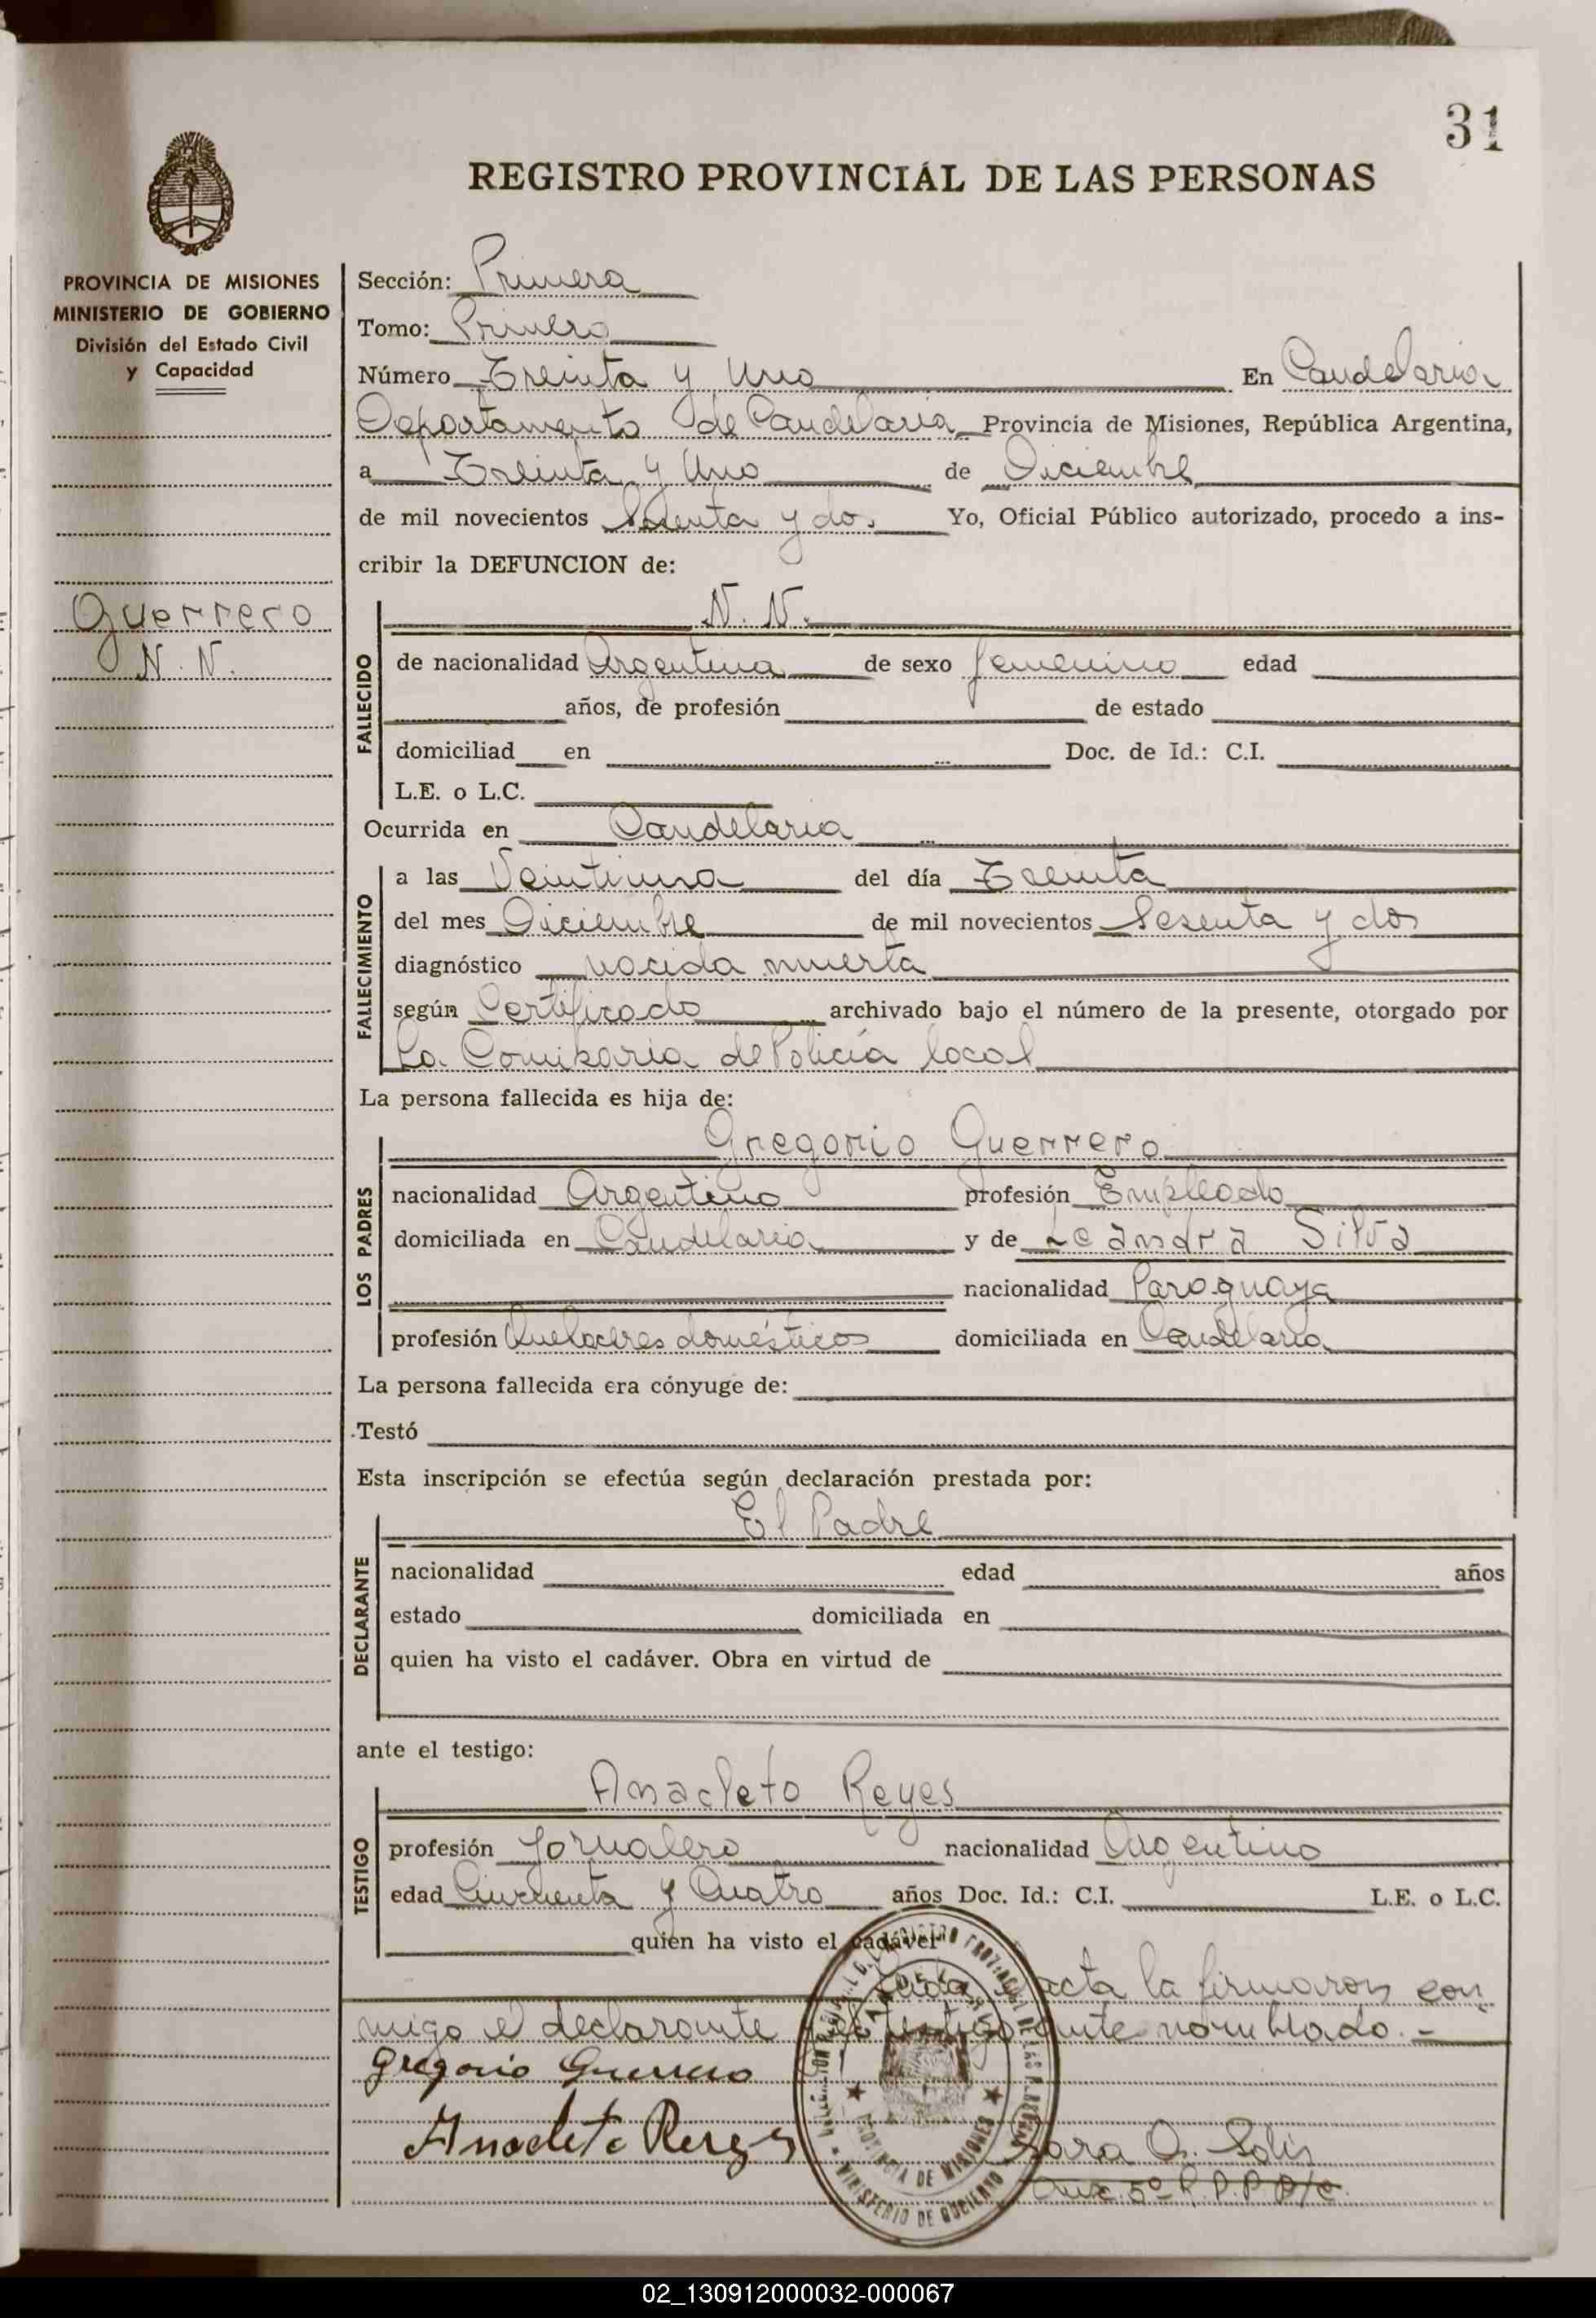 31
REGISTRO PROVINCIAL DE LAS PERSONAS
PROVINCIA DE MISIONES
MINISTERIO DE GOBIERNO
División del Estado Civil
y Capacidad
Guerrero
N. N.
Sección: Primera
Tomo: Primero
Número Treinta y Uno En Candelaria
Departamento de Candelaria Provincia de Misiones, República Argentina,
a Treinta y Uno de Diciembre
de mil novecientos Sesenta y dos Yo, Oficial Público autorizado, procedo a ins-
cribir la DEFUNCION de:
N. N.
FALLECIDO
de nacionalidad Argentina de sexo femenino edad
años, de profesión de estado
domiciliad en Doc. de Id.: C.I.
L.E. o L.C.
Ocurrida en Candelaria
FALLECIMIENTO
a las Veintiuna del día Treinta
del mes Diciembre de mil novecientos Sesenta y dos
diagnóstico nacida muerta
según Certificado archivado bajo el número de la presente, otorgado por
La Comisaria de Policía local
La persona fallecida es hija de:
LOS PADRES
Gregorio Guerrero
nacionalidad Argentino profesión Empleado
domiciliada en Candelaria y de Leandra Silva
nacionalidad Paraguaya
profesión Quehaceres domésticos domiciliada en Candelaria
La persona fallecida era cónyuge de:
Testó
Esta inscripción se efectúa según declaración prestada por:
DECLARANTE
El Padre
nacionalidad edad años
estado domiciliada en
quien ha visto el cadáver. Obra en virtud de
ante el testigo:
TESTIGO
Anacleto Reyes
profesión Jornalero nacionalidad Argentino
edad Cincuenta y Cuatro años Doc. Id.: C.I. L.E. o L.C.
quien ha visto el cadáver
acta la firmaron con
migo el declarante y el testigo ante nombrado.-
Gregorio Guerrero
Anacleto Reyes
Sara O. Solis
Aux. 5º
PROVINCIA DE MISIONES
MINISTERIO DE GOBIERNO
02_130912000032-000067